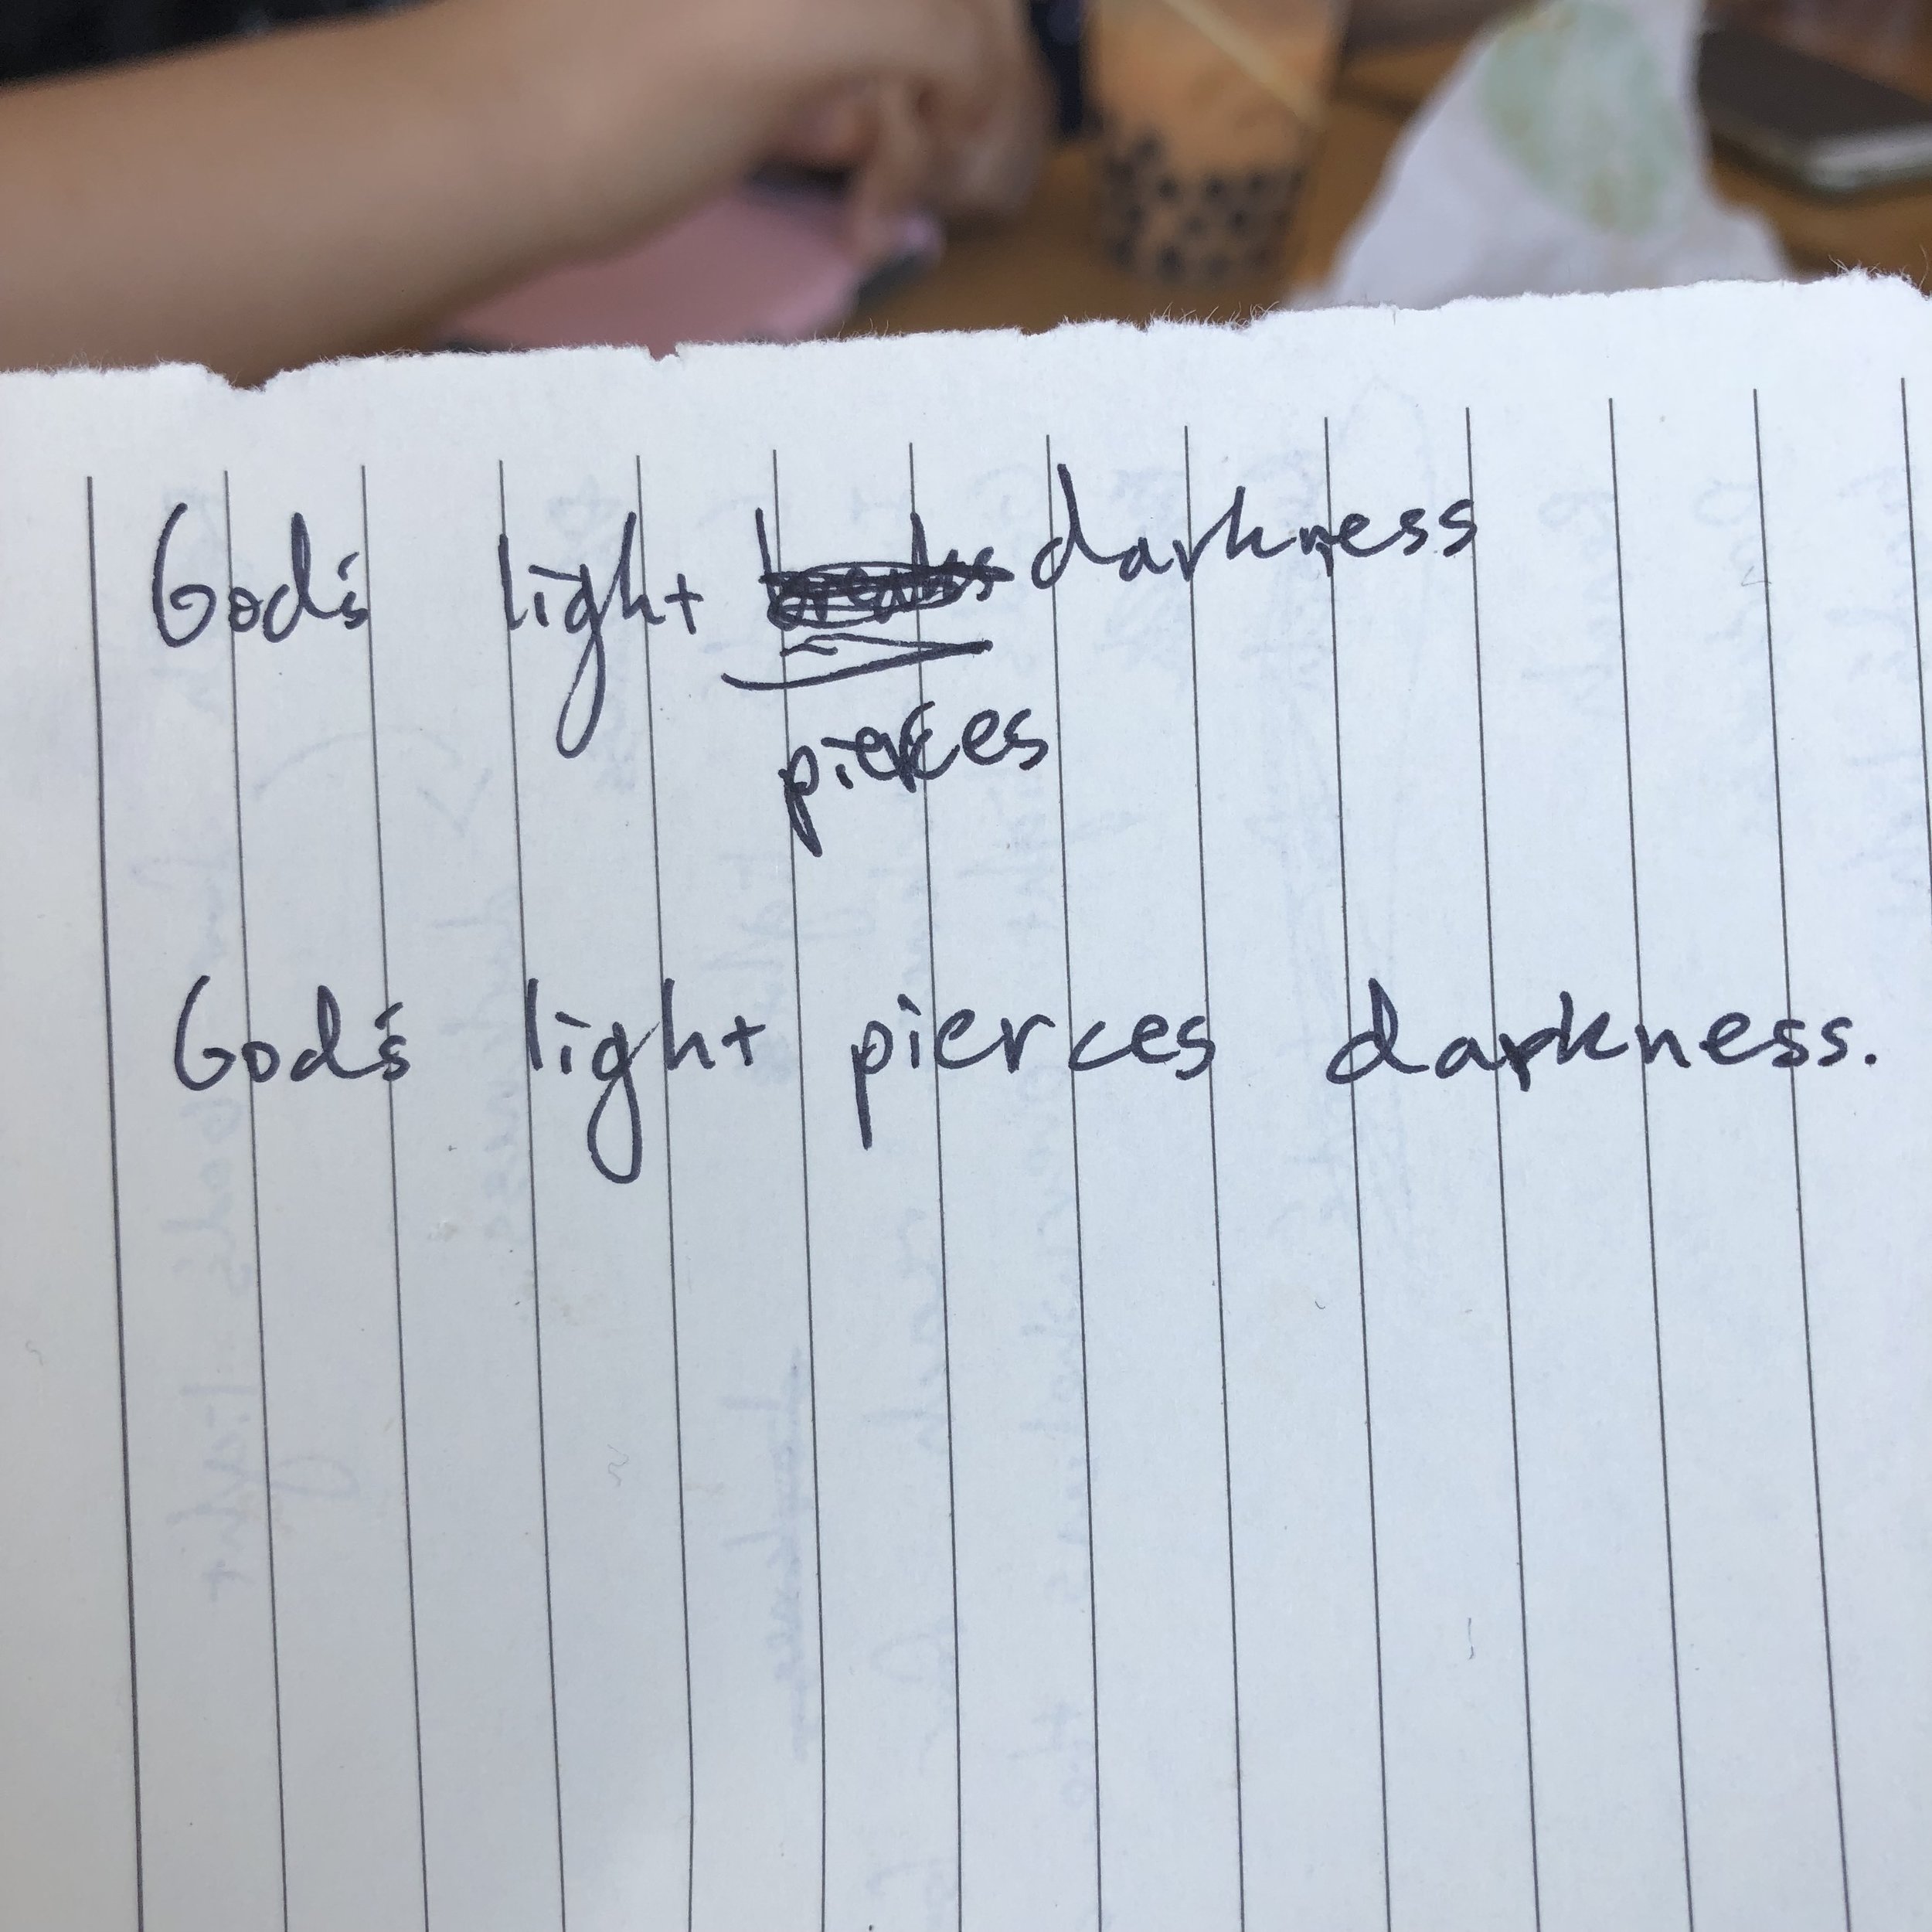 God's light breaks darkness
pierces
God's light pierces darkness.